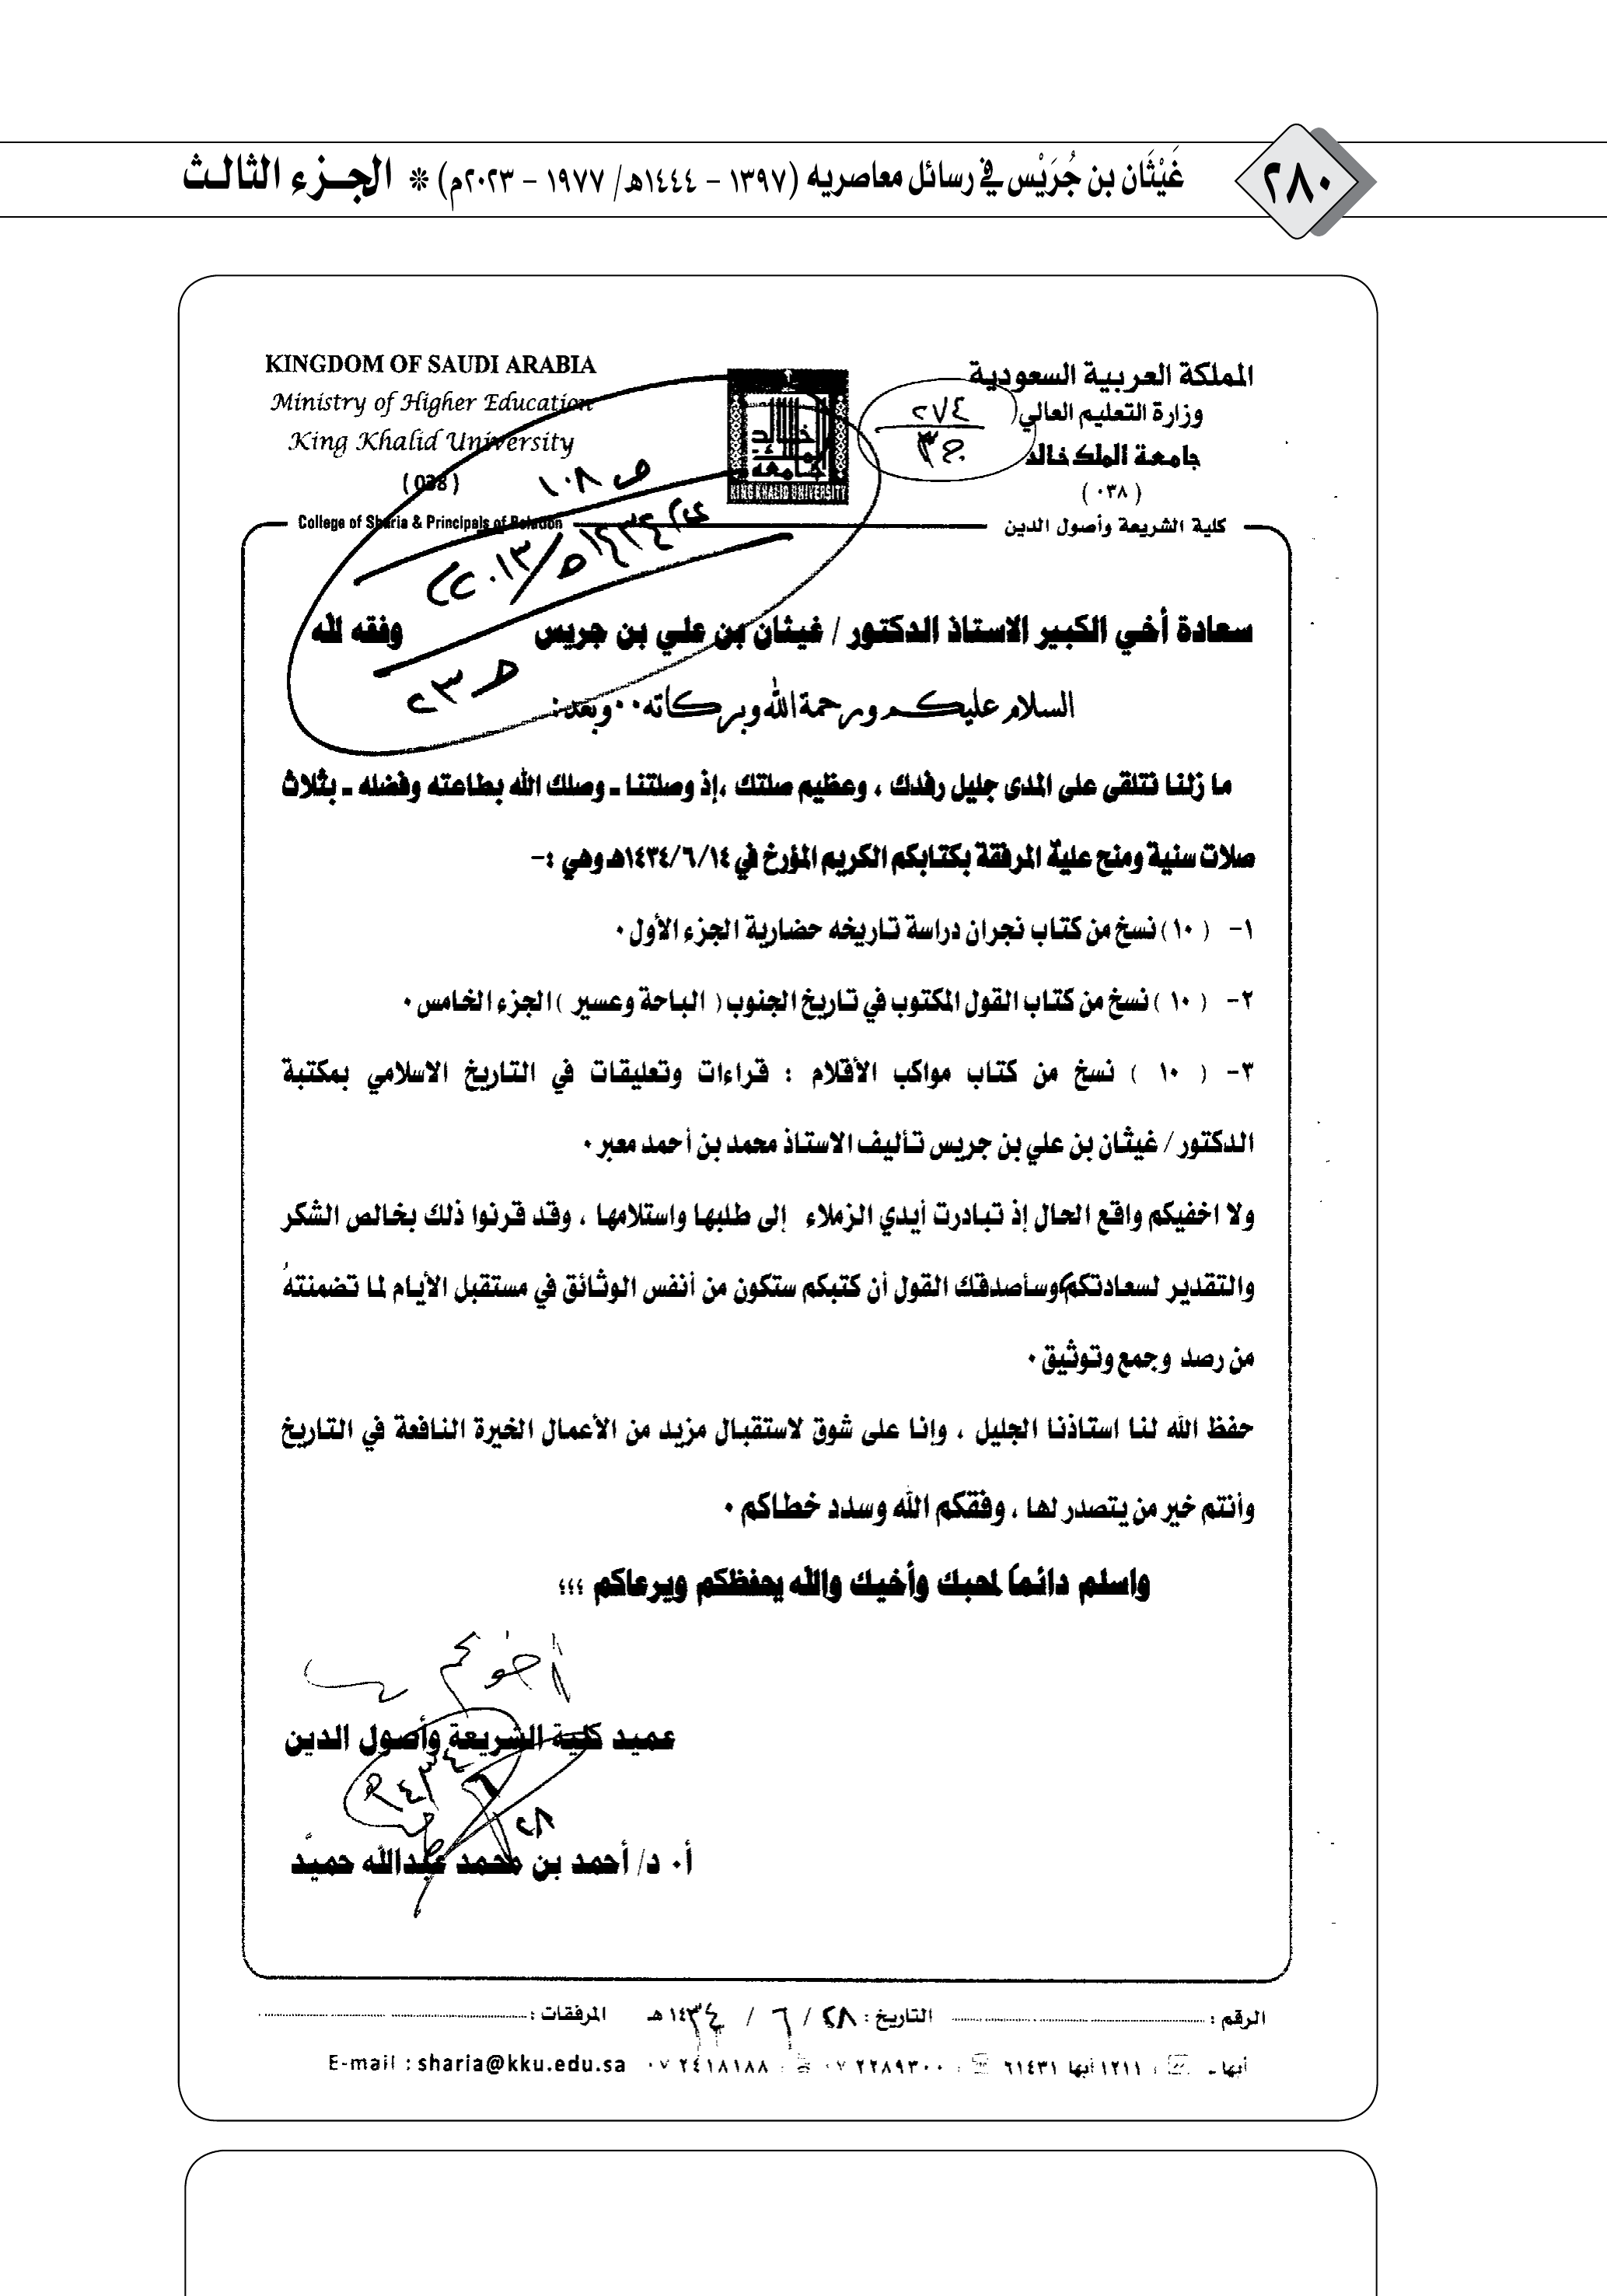 ٢٨٠
غَيْثَان بن جُرَيْس في رسائل معاصريه (١٣٩٧ - ١٤٤٤هـ/ ١٩٧٧ - ٢٠٢٣م) * الجـزء الثالث
المملكة العربية السعودية
وزارة التعليم العالي
جامعة الملك خالد
( ٠٣٨ )
كلية الشريعة وأصول الدين
٢٧٤
ج٣
KING KHALID UNIVERSITY
KINGDOM OF SAUDI ARABIA
Ministry of Higher Education
King Khalid University
( 038 )
College of Sharia & Principals of Relation
ص ١٠٨
سعادة أخي الكبير الاستاذ الدكتور / غيثان بن علي بن جريس وفقه لله
السلام عليكم ورحمة الله وبركاته ٠٠ وبعد :
ما زلنا نتلقى على المدى جليل رفدك ، وعظيم صلتك ،إذ وصلتنا ـ وصلك الله بطاعته وفضله ـ بثلاث
صلات سنية ومنح عليّة المرفقة بكتابكم الكريم المؤرخ في ١٤٣٤/٦/١٤هـ وهي :-
١- ( ١٠ ) نسخ من كتاب نجران دراسة تاريخه حضارية الجزء الأول ٠
٢- ( ١٠ ) نسخ من كتاب القول المكتوب في تاريخ الجنوب ( الباحة وعسير ) الجزء الخامس ٠
٣- ( ١٠ ) نسخ من كتاب مواكب الأقلام : قراءات وتعليقات في التاريخ الاسلامي بمكتبة
الدكتور / غيثان بن علي بن جريس تأليف الاستاذ محمد بن أحمد معبر ٠
ولا اخفيكم واقع الحال إذ تبادرت أيدي الزملاء إلى طلبها واستلامها ، وقد قرنوا ذلك بخالص الشكر
والتقدير لسعادتكم وسأصدقك القول أن كتبكم ستكون من أنفس الوثائق في مستقبل الأيام لما تضمنتهُ
من رصد وجمع وتوثيق ٠
حفظ الله لنا استاذنا الجليل ، وإنا على شوق لاستقبال مزيد من الأعمال الخيرة النافعة في التاريخ
وأنتم خير من يتصدر لها ، وفقكم الله وسدد خطاكم ٠
واسلم دائماً لمحبك وأخيك والله يحفظكم ويرعاكم ،،،
أخوكم
عميد كلية الشريعة وأصول الدين
٢٨ ٦ ١٤٣٤هـ
أ٠ د/ أحمد بن محمد عبدالله حميد
الرقم : التاريخ : ٢٨ / ٦ / ١٤٣٤ هـ المرفقات :
أبها ـ ١٢١١ أبها ٦١٤٣١ ٠٧ ٢٢٨٩٣٠٠ ٠٧ ٢٤١٨١٨٨ E-mail : sharia@kku.edu.sa